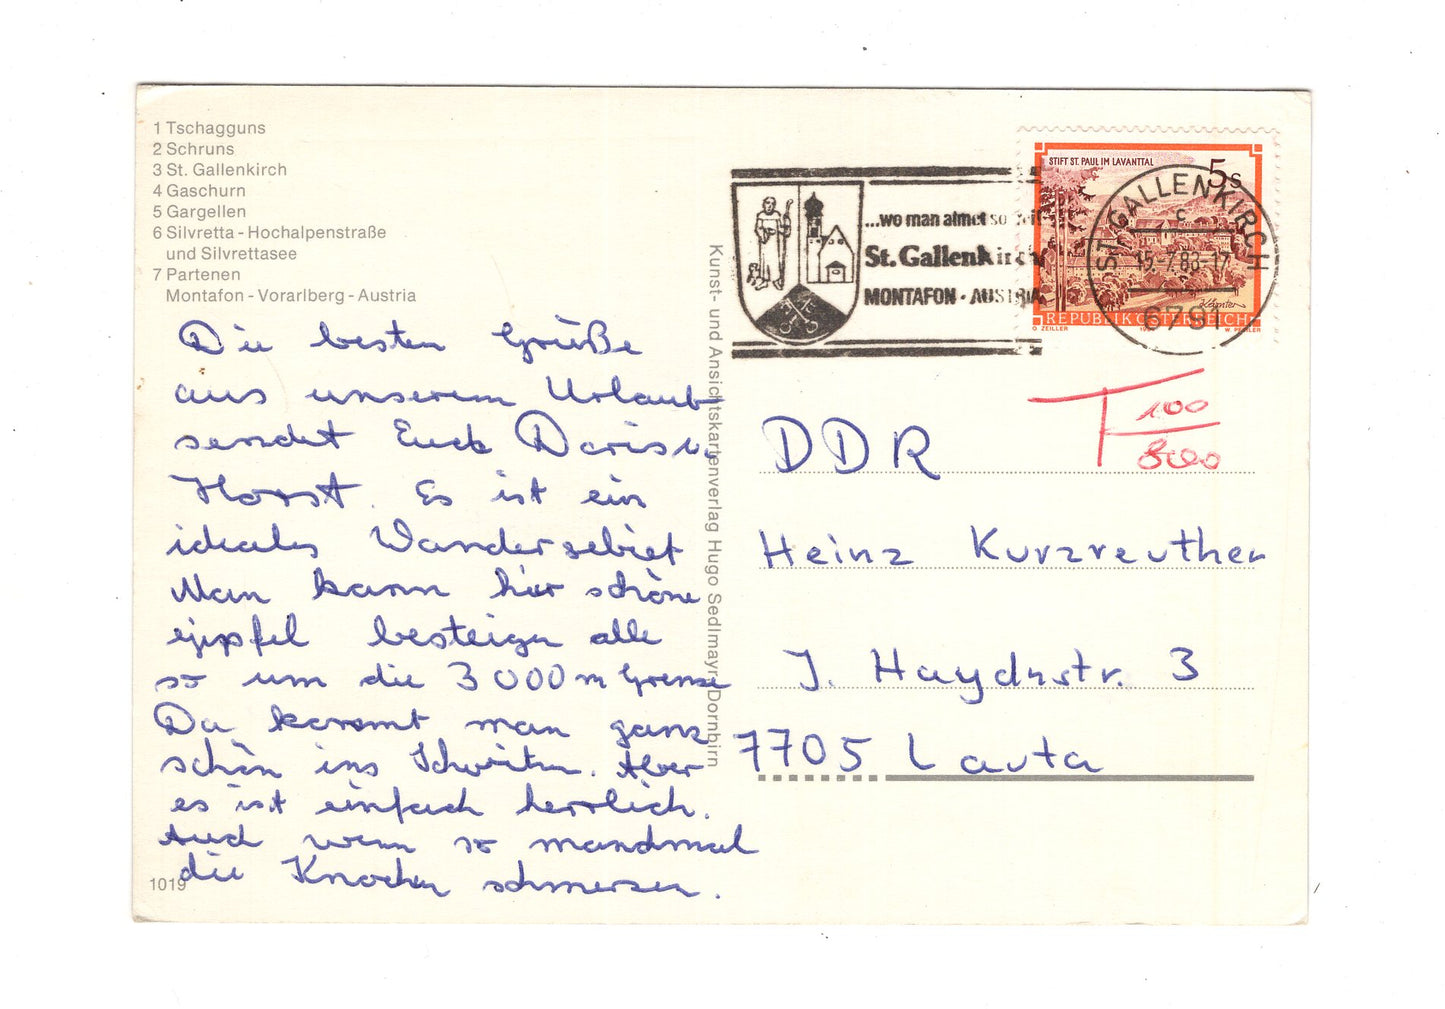 1 Tschagguns
2 Schruns
3 St. Gallenkirch
4 Gaschurn
5 Gargellen
6 Silvretta - Hochalpenstraße
und Silvrettasee
7 Partenen
Montafon - Vorarlberg - Austria
Die besten Grüße
aus unserem Urlaub
sendet Euch Doris u.
Horst. Es ist ein
ideales Wandergebiet
Man kann hier schöne
Gipfel besteigen alle
so um die 3000 m Grenze
Da kommt man ganz
schön ins Schwitzen. Aber
es ist einfach herrlich.
Auch wenn so manchmal
die Knochen schmerzen.
1019
Kunst- und Ansichtskartenverlag Hugo Sedlmayr, Dornbirn
...wo man atmet so
St. Gallenkirch
MONTAFON · AUSTRIA
STIFT ST. PAUL IM LAVANTTAL
5 S
REPUBLIK ÖSTERREICH
O. ZEILLER
W. PFEILER
ST. GALLENKIRCH
c
15.-7.88-17
6791
T 100
800
DDR
Heinz Kurzreuther
J. Haydnstr. 3
7705 Lauta